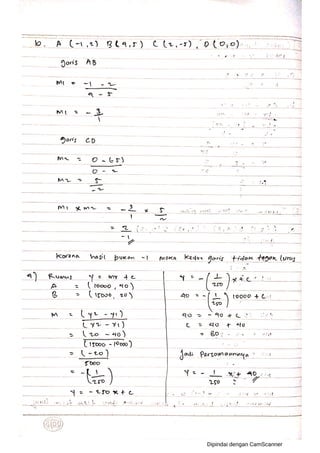 b. A (-1,2) B (4,5) C (2,-5), D (0,0)
garis AB
m1 = -1 - 2
4 - 5
m1 = - 3
1
garis CD
m2 = 0 - (-5)
0 - 2
m2 = 5
-2
m1 x m2 = - 3 x 5
1
-1
karena hasil bukan -1 maka kedua garis tidak tegak lurus
a) Rumus y = mx + c
A = (10000, 40)
B = (15000, 20)
m = (y2 - y1)
(x2 - x1)
= (20 - 40)
(15000 - 10000)
= (-20)
5000
= - (1)
250
y = - 250 x + c
y = - (1) x + c
250
40 = - (1) 10000 + c
250
40 = - 40 + c
c = 40 + 40
= 80
Jadi Persamaannya
y = - 1 x + 40
250
Dipindai dengan CamScanner